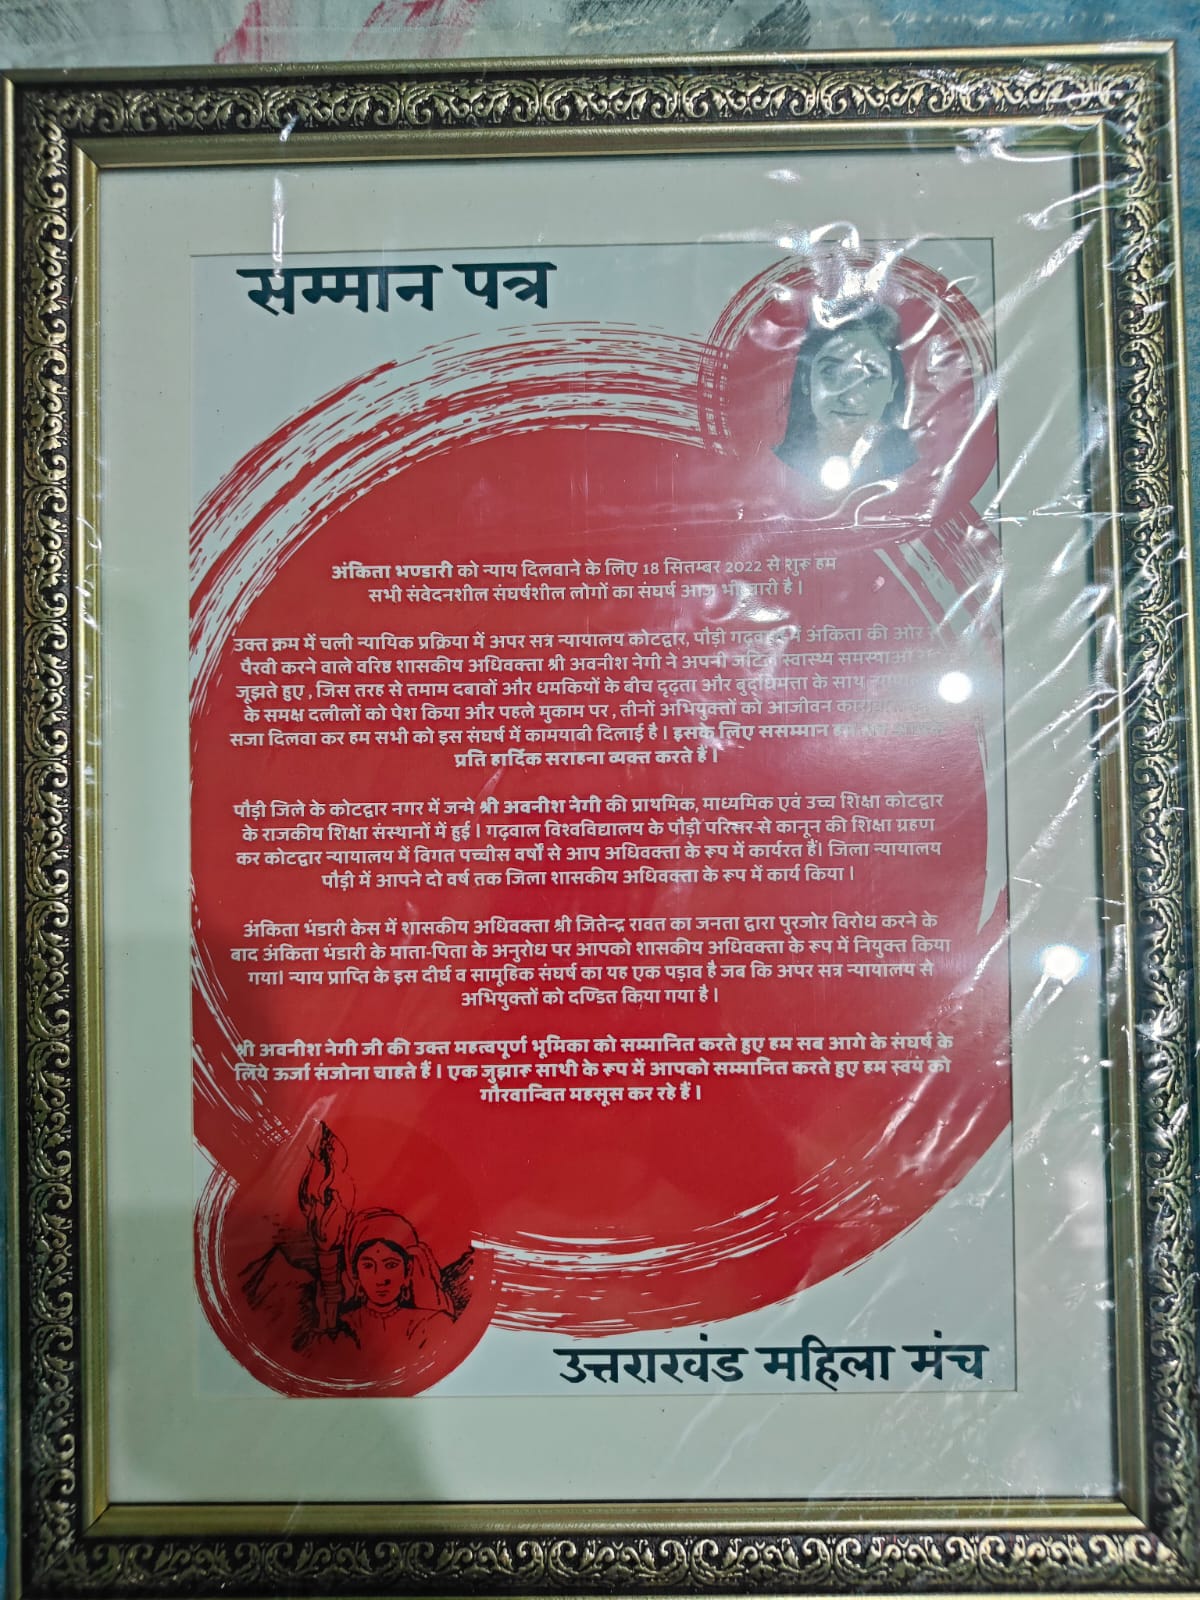 सम्मान पत्र
अंकिता भण्डारी को न्याय दिलवाने के लिए 18 सितम्बर 2022 से शुरू हम
सभी संवेदनशील संघर्षशील लोगों का संघर्ष आज भी जारी है ।
उक्त क्रम में चली न्यायिक प्रक्रिया में अपर सत्र न्यायालय कोटद्वार, पौड़ी में अंकिता की ओर
पैरवी करने वाले वरिष्ठ शासकीय अधिवक्ता श्री अवनीश नेगी ने अपनी जटिल स्वास्थ्य
जूझते हुए , जिस तरह से तमाम दबावों और धमकियों के बीच दृढ़ता और बुद्धिमत्ता के साथ
के समक्ष दलीलों को पेश किया और पहले मुकाम पर , तीनों अभियुक्तों को आजीवन
सजा दिलवा कर हम सभी को इस संघर्ष में कामयाबी दिलाई है । इसके लिए ससम्मान
प्रति हार्दिक सराहना व्यक्त करते हैं ।
पौड़ी जिले के कोटद्वार नगर में जन्मे श्री अवनीश नेगी की प्राथमिक, माध्यमिक एवं उच्च शिक्षा कोटद्वार
के राजकीय शिक्षा संस्थानों में हुई । गढ़वाल विश्वविद्यालय के पौड़ी परिसर से कानून की शिक्षा ग्रहण
कर कोटद्वार न्यायालय में विगत पच्चीस वर्षों से आप अधिवक्ता के रूप में कार्यरत हैं। जिला न्यायालय
पौड़ी में आपने दो वर्ष तक जिला शासकीय अधिवक्ता के रूप में कार्य किया ।
अंकिता भंडारी केस में शासकीय अधिवक्ता श्री जितेन्द्र रावत का जनता द्वारा पुरजोर विरोध करने के
बाद अंकिता भंडारी के माता-पिता के अनुरोध पर आपको शासकीय अधिवक्ता के रूप में नियुक्त किया
गया। न्याय प्राप्ति के इस दीर्घ व सामूहिक संघर्ष का यह एक पड़ाव है जब कि अपर सत्र न्यायालय से
अभियुक्तों को दण्डित किया गया है ।
श्री अवनीश नेगी जी की उक्त महत्वपूर्ण भूमिका को सम्मानित करते हुए हम सब आगे के संघर्ष के
लिये ऊर्जा संजोना चाहते हैं । एक जुझारू साथी के रूप में आपको सम्मानित करते हुए हम स्वयं को
गौरवान्वित महसूस कर रहे हैं ।
उत्तराखंड महिला मंच